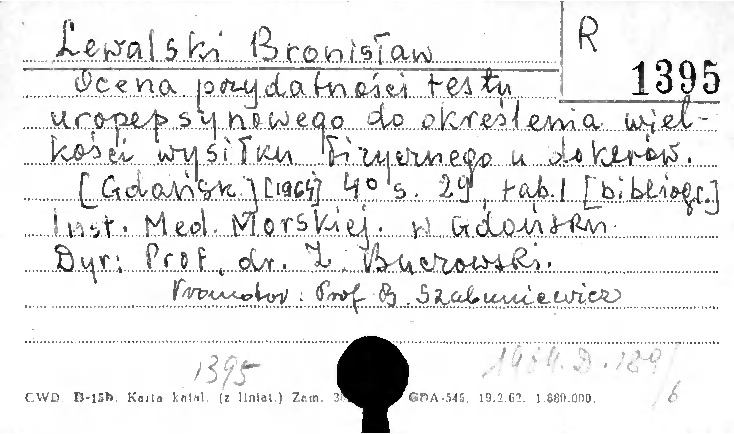 R
1395
Lewalski Bronisław
Ocena przydatności testu
uropepsynowego do określenia wiel-
kości wysiłku fizycznego u dokerów.
[Gdańsk] [1964] 4° s. 29, tab. 1 [bibliogr.]
Inst. Med. Morskiej. w Gdańsku.
Dyr: Prof. dr. Z. Buczowski.
Promotor: Prof B. Szabuniewicz
1395
1964. D. 189/6
CWD B-15b. Karta katal. (z liniat.) Zam. GDA-546. 19.2.62. 1.880.000.